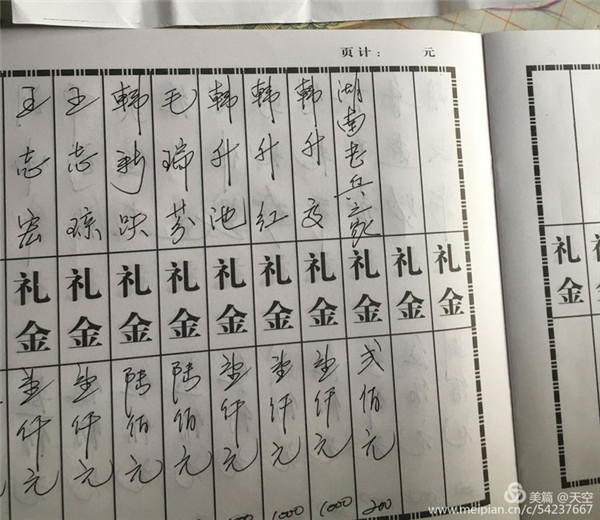 页计： 元
湖南老兵之家
礼金
贰佰元
200
韩升
礼金
壹仟元
1000
韩升红
礼金
壹仟元
1000
韩升池
礼金
壹仟元
毛瑞芬
礼金
陆佰元
韩新跃
礼金
陆佰元
王志琼
礼金
壹仟元
王志宏
礼金
壹仟元
礼金
礼金
礼金
礼
美篇 @天空
www.meipian.cn/c/54237667